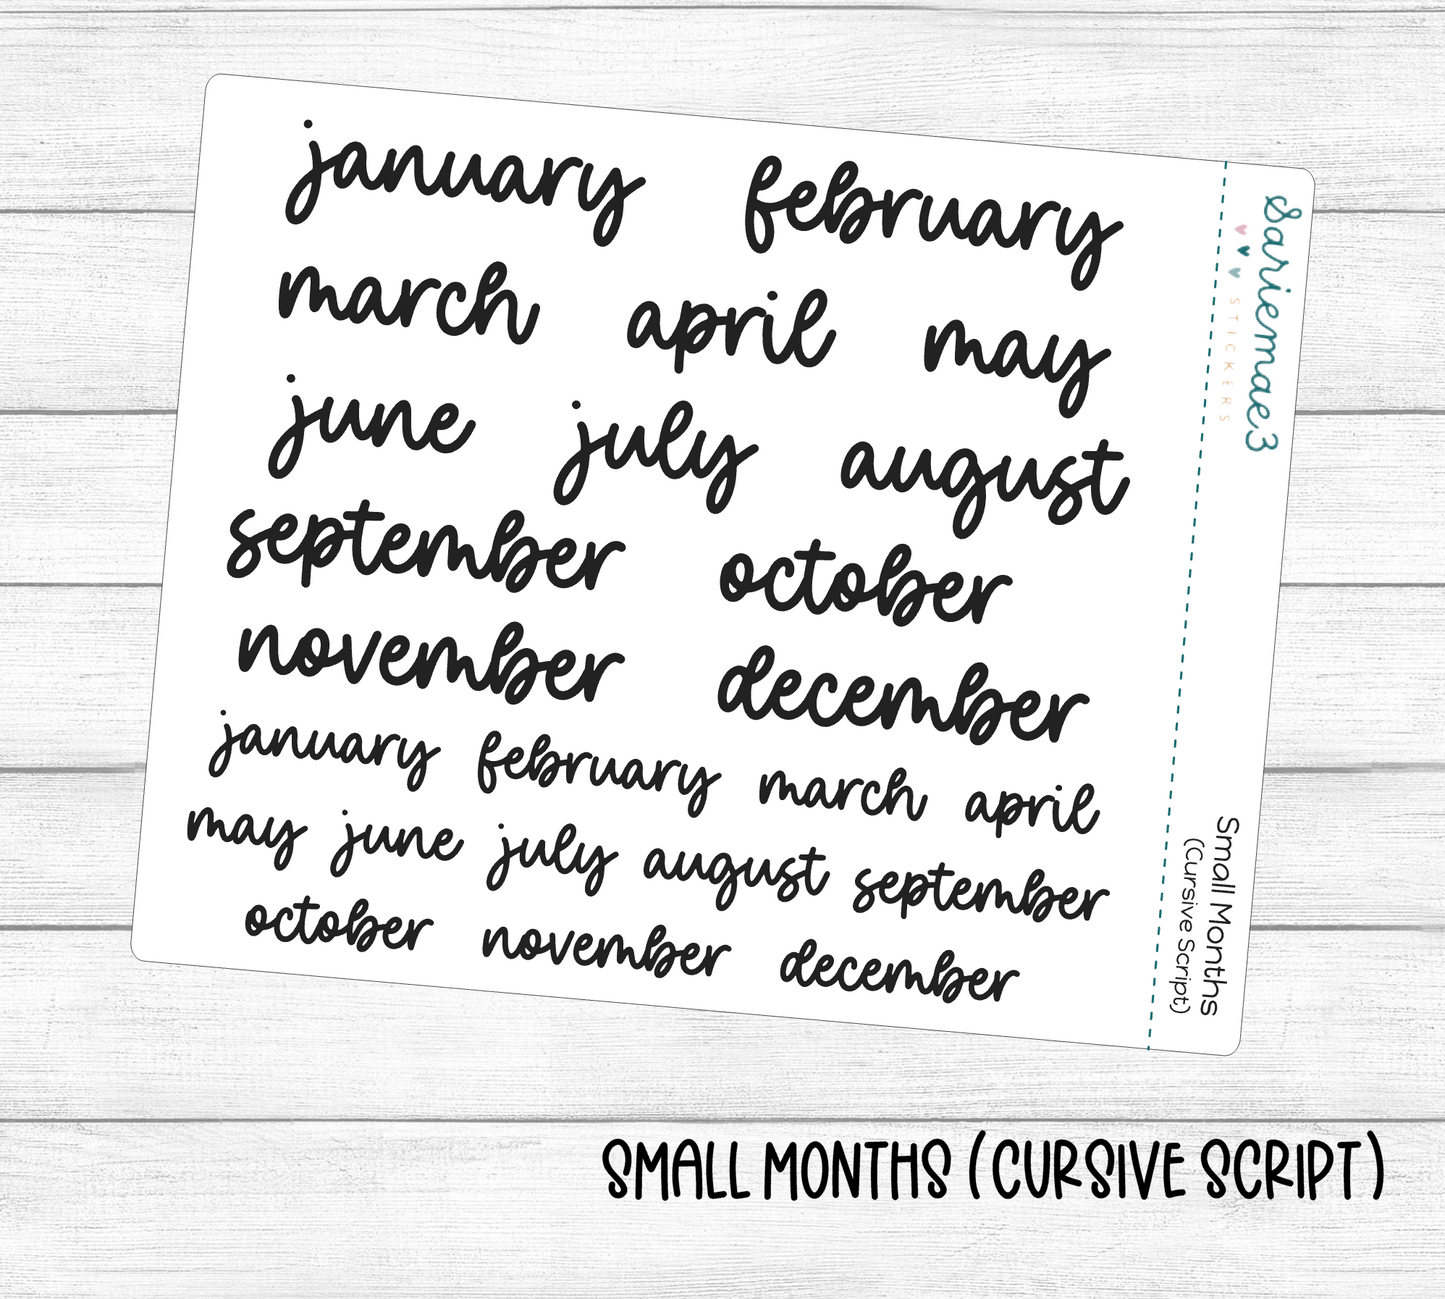 january february
march april may
june july august
september october
november december
january february march april
may june july august september
october november december
sariemae3
STICKERS
Small Months
(Cursive Script)
SMALL MONTHS (CURSIVE SCRIPT)